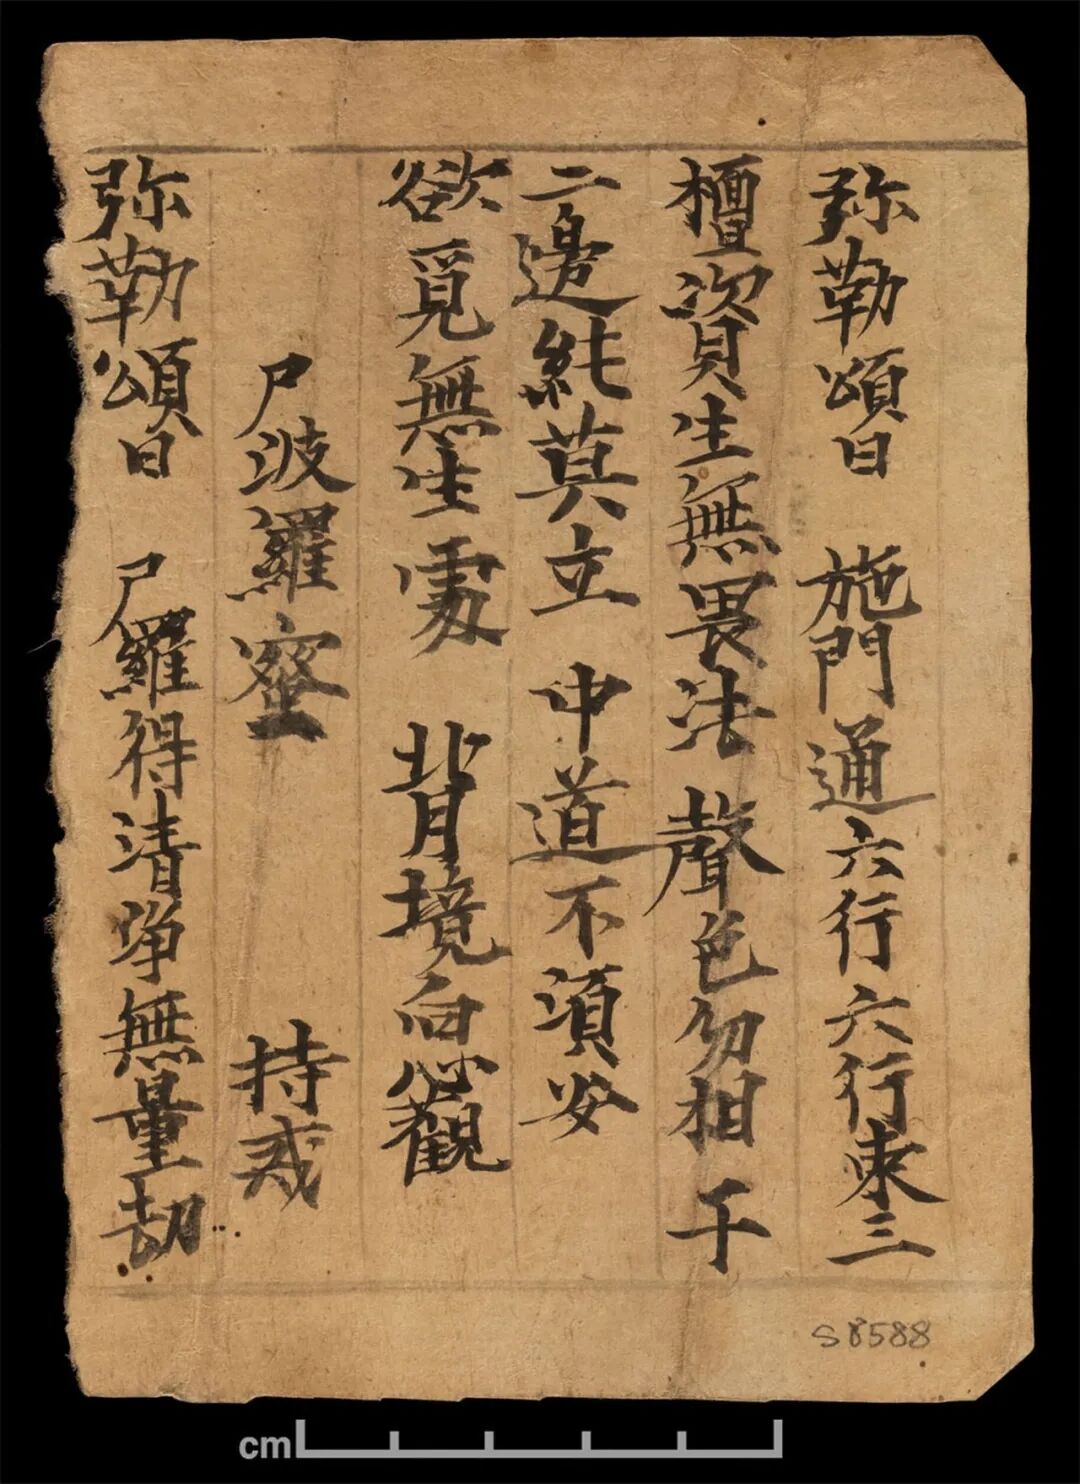 弥勒頌曰 施門通六行六行束三
檀資生無畏法 聲色勿相干
二邊純莫立 中道不須安
欲覓無生處 背境向心觀
尸波羅蜜 持戒
弥勒頌曰 尸羅得清净無量劫
S 8588
cm